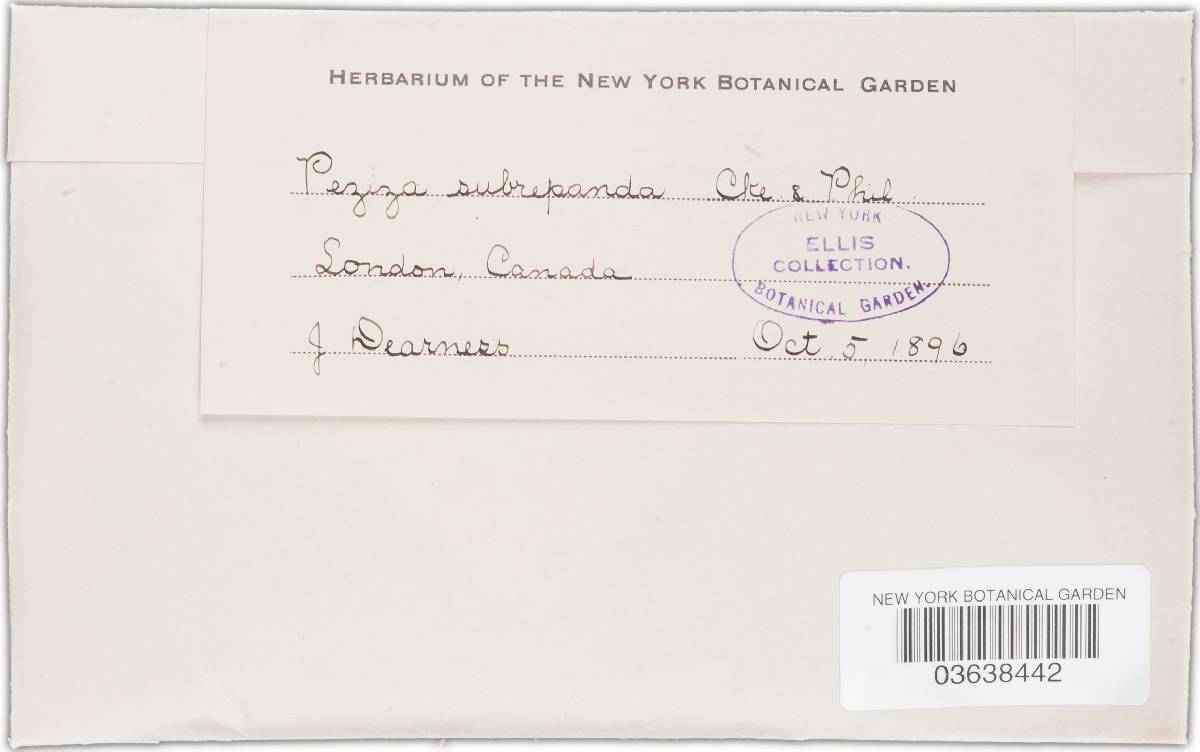 HERBARIUM OF THE NEW YORK BOTANICAL GARDEN
Peziza subrepanda Cke & Phil.
NEW YORK
ELLIS
COLLECTION.
BOTANICAL GARDEN.
London, Canada
J Dearness Oct. 5, 1896
NEW YORK BOTANICAL GARDEN
03638442